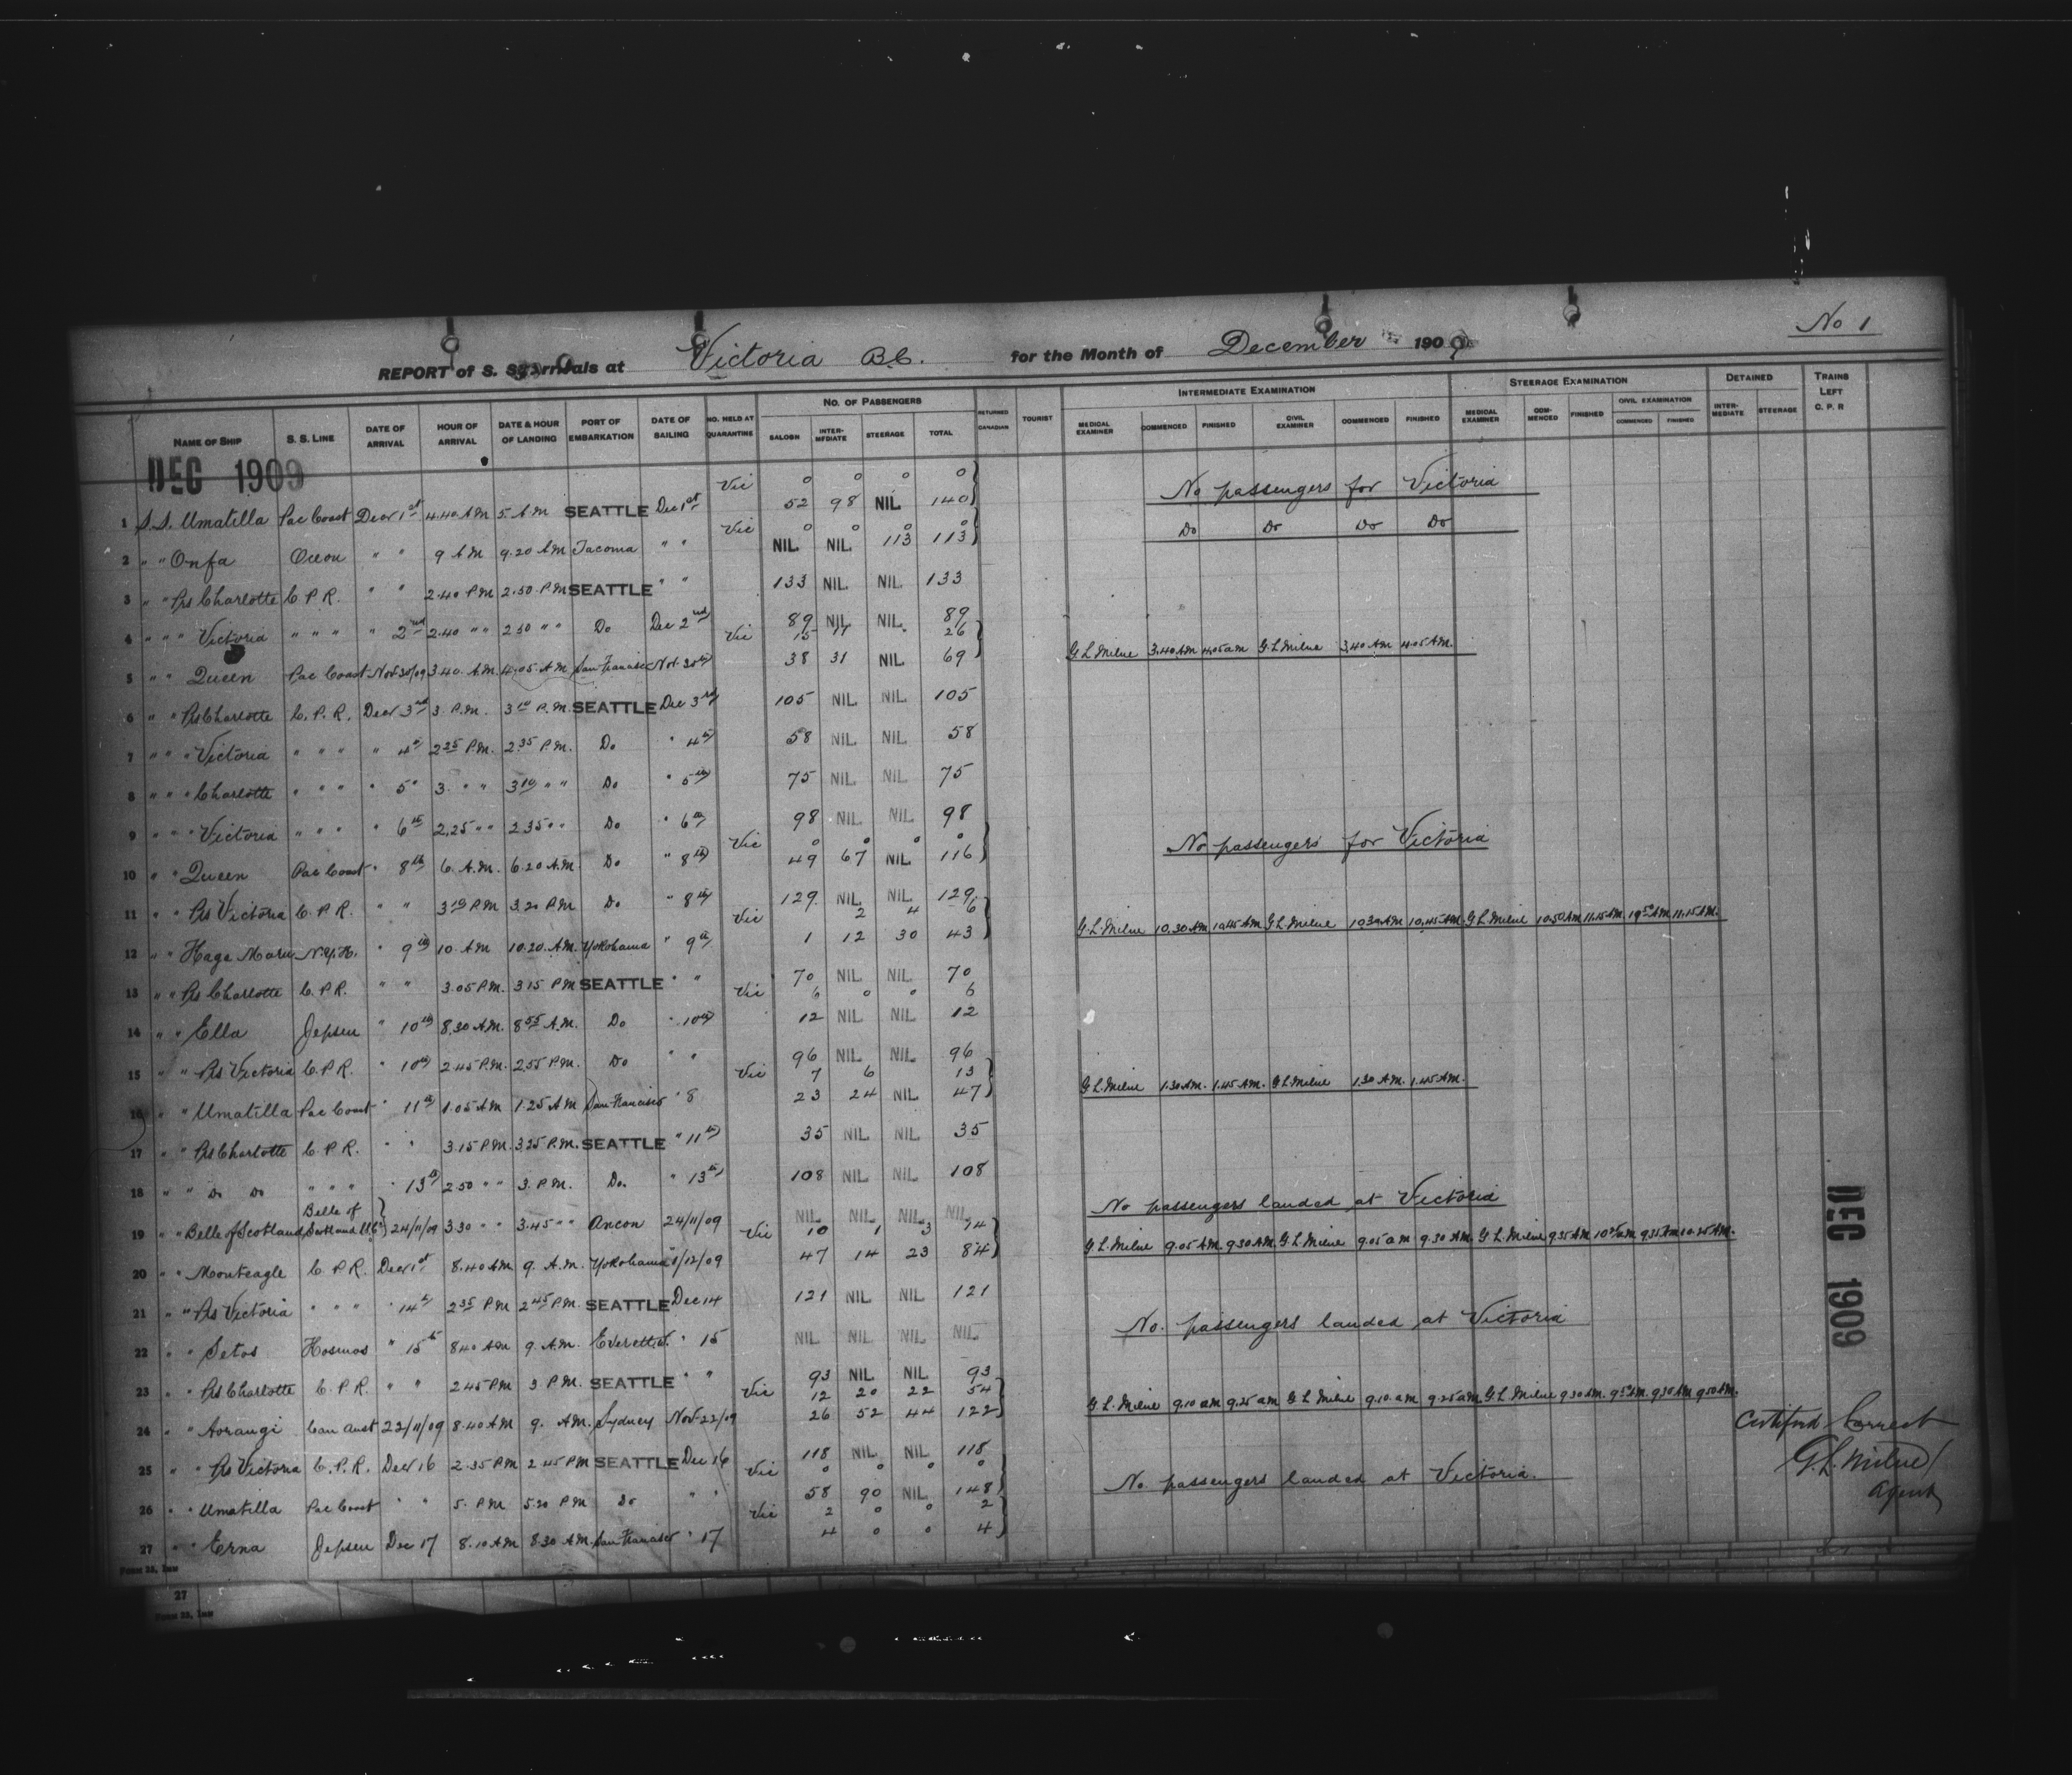 No 1
REPORT of S. S. Arrivals at Victoria B.C. for the Month of December 1909
NAME OF SHIP S. S. LINE DATE OF ARRIVAL HOUR OF ARRIVAL DATE & HOUR OF LANDING PORT OF EMBARKATION DATE OF SAILING NO. HELD AT QUARANTINE NO. OF PASSENGERS SALOON INTER-MEDIATE STEERAGE TOTAL RETURNED CANADIAN TOURIST INTERMEDIATE EXAMINATION MEDICAL EXAMINER COMMENCED FINISHED CIVIL EXAMINER COMMENCED FINISHED STEERAGE EXAMINATION MEDICAL EXAMINER COM-MENCED FINISHED CIVIL EXAMINATION COMMENCED FINISHED DETAINED INTER-MEDIATE STEERAGE TRAINS LEFT C. P. R
DEC 1909
Vic 0 0 0 0 No passengers for Victoria
1 S.S. Umatilla Pac Coast Decr 1st 4.40 AM 5. A M SEATTLE Dec 1st 52 98 NIL 140
Vic 0 0 0 0 Do Do Do Do
2 " " Onfa Ocean " " 9 AM 9.20 AM Tacoma " " NIL NIL 113 113
3 " " Prs Charlotte C.P.R. " " 2.40 PM 2.50 P.M SEATTLE " " 133 NIL NIL 133
4 " " " Victoria " " " " 2nd 2.40 " " 2 50 " " Do Dec 2nd 89 NIL NIL 89
Vic 15 11 26 G L Milne 3.40 AM 4.05 am G L Milne 3.40 AM 4.05 AM.
5 " " Queen Pac Coast Nov 30/09 3.40. A.M. 4.05. A.M San Francisco Nov. 30th 38 31 NIL 69
6 " " Prs Charlotte C. P. R. Decr 3rd 3. P.M. 3 10 P.M. SEATTLE Dec 3rd 105 NIL NIL 105
7 " " " Victoria " " " " 4th 2 25 P.M. 2.35 P.M. Do " 4th 58 NIL NIL 58
8 " " " Charlotte " " " " 5" 3. " " 3 10 " " Do " 5th 75 NIL NIL 75
9 " " " Victoria " " " " 6th 2.25 " " 2 35 " " Do " 6th 98 NIL NIL 98
Vic 0 0 0 0 No passengers for Victoria
10 " " Queen Pac Coast " 8th 6. A.M. 6.20 A.M. Do " 8th 49 67 NIL 116
11 " " Prs Victoria C.P.R. " " 3 10 PM 3.20 PM Do " 8th 129 NIL NIL 129
Vic 2 4 6 G.L. Milne 10.30 AM 10.45 AM G L. Milne 10.30 AM 10.45 AM G L. Milne 10.50 AM 11.15 AM 10 50 AM 11.15 AM.
12 " " Haga Maru N.Y.K. " 9th 10. AM 10.20. A.M. Yokohama " 9th 1 12 30 43
13 " " Prs Charlotte C.P.R. " " 3.05 P.M. 3 15 PM SEATTLE " " 70 NIL NIL 70
Vic 6 0 0 6
14 " " Ella Jepsen " 10th 8.30 A.M. 8 55 A.M. Do " 10th 12 NIL NIL 12
15 " " Prs Victoria C.P.R. " 10th 2 45 P.M. 2.55 P.M. Do " " 96 NIL NIL 96
Vic 7 6 13 G L Milne 1.30 AM. 1.45 AM. G L Milne 1.30 AM. 1.45 AM.
16 " " Umatilla Pac Coast " 11th 1.05 AM 1.25 AM San Francisco " 8 23 24 NIL 47
17 " " Prs Charlotte C.P.R. " " 3.15 P.M. 3.25 P.M. SEATTLE " 11th 35 NIL NIL 35
18 " " Do Do " " " " 13th 2.50 " " 3. P.M. Do. " 13th 108 NIL NIL 108
No passengers landed at Victoria
19 " " Belle of Scotland Belle of Scotland 24/11/09 3.30 " " 3.45 " " Ancon 24/11/09 NIL NIL NIL NIL
Vic 10 1 3 14 G L. Milne 9.05 AM. 9.30 AM. G L. Milne 9.05 am 9.30 AM. G L. Milne 9.35 AM 10 25 am 9.35 AM 10.25 AM.
20 " " Monteagle C.P.R. Decr 1st 8.40 AM 9. A.M. Yokohama 1/12/09 47 14 23 84
21 " " Prs Victoria " " " " 14th 2 35 PM 2 45 P.M. SEATTLE Dec 14 121 NIL NIL 121
No. passengers landed at Victoria
22 " " Setos Kosmos " 15th 8.40 AM 9. A.M. Everett " 15 NIL NIL NIL NIL
23 " " Prs Charlotte C.P.R. " " 2 45 PM 3 P.M. SEATTLE " " 93 NIL NIL 93
Vic 12 20 22 54 G L. Milne 9.10 am 9.25 am G L Milne 9.10. am 9.25 am G L Milne 9.30 AM. 9.50 AM. 9.30 AM 9.50 AM.
24 " " Aorangi Can Aust 22/11/09 8.40 AM 9. AM. Sydney Nov-22/09 26 52 44 122
25 " " Prs Victoria C.P.R. Decr 16 2.35 PM 2 45 PM SEATTLE Dec 16 118 NIL NIL 118
Vic 0 0 0 0 No. passengers landed at Victoria.
26 " " Umatilla Pac Coast " " 5. PM 5.20 PM Do " " 58 90 NIL 148
Vic 2 0 0 2
27 " " Erna Jepsen Dec 17 8.10 AM 8.30 AM. San Francisco " 17 4 0 0 4
DEC 1909
Certified Correct
G.L. Milne
Agent
FORM 33, IMM
27
FORM 33, IMM